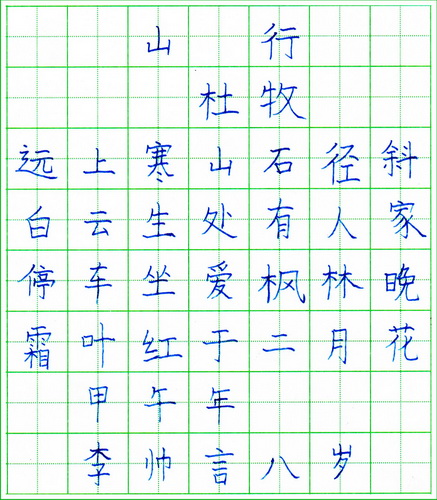 山行
杜牧
远上寒山石径斜
白云生处有人家
停车坐爱枫林晚
霜叶红于二月花
甲午年
李帅言八岁